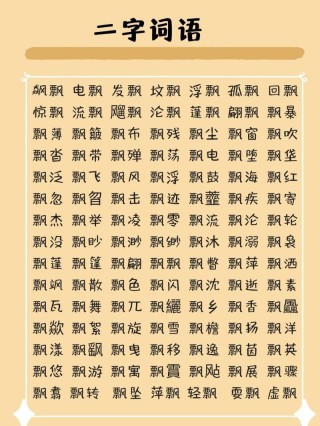 二字词语
飙飘 电飘 发飘 坟飘 浮飘 孤飘 回飘
惊飘 流飘 飘 沦飘 蓬飘 翩飘 飘暴
飘薄 飘簸 飘布 飘残 飘尘 飘窗 飘吹
飘沓 飘带 飘殚 飘荡 飘电 飘堕 飘
飘泛 飘飞 飘风 飘浮 飘鼓 飘海 飘红
飘忽 飘 飘击 飘迹 飘 飘疾 飘寄
飘杰 飘举 飘凌 飘零 飘流 飘沦 飘轮
飘没 飘眇 飘渺 飘缈 飘沐 飘溺 飘袅
飘蓬 飘篷 飘翩 飘飘 飘瞥 飘萍 飘洒
飘飒 飘散 飘色 飘闪 飘沈 飘逝 飘素
飘瓦 飘舞 飘兀 飘 飘乡 飘香 飘
飘 飘絮 飘旋 飘雪 飘檐 飘扬 飘洋
飘漾 飘 飘曳 飘移 飘逸 飘茵 飘英
飘悠 飘游 飘寓 飘 飘飐 飘展 飘骤
飘翥 飘转 飘坠 萍飘 轻飘 耍飘 虚飘